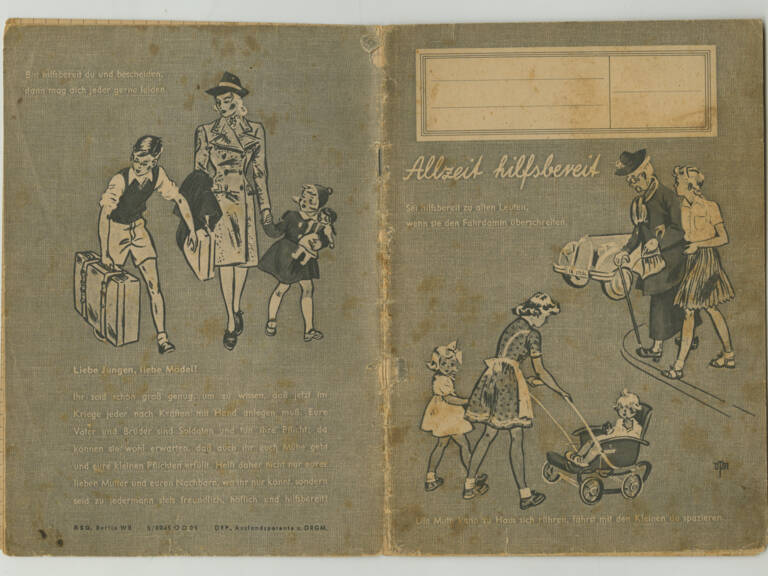 Bist hilfsbereit du und bescheiden,
dann mag dich jeder gerne leiden.
Liebe Jungen, liebe Mädel!
Ihr seid schon groß genug, um zu wissen, daß jetzt im
Kriege jeder nach Kräften mit Hand anlegen muß. Eure
Väter und Brüder sind Soldaten und tun ihre Pflicht; da
können sie wohl erwarten, daß auch ihr euch Mühe gebt
und eure kleinen Pflichten erfüllt. Helft daher nicht nur eurer
lieben Mutter und euren Nachbarn, wo ihr nur könnt, sondern
seid zu jedermann stets freundlich, höflich und hilfsbereit!
Berlin W8 DRP. Auslandspatente u. DRGM.
Allzeit hilfsbereit
Sei hilfsbereit zu alten Leuten,
wenn sie den Fahrdamm überschreiten.
Mutti kann zu Haus sich rühren, fährst mit den Kleinen du spazieren.